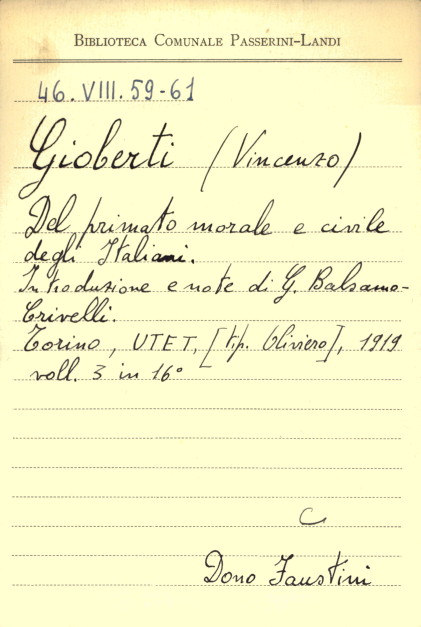 BIBLIOTECA COMUNALE PASSERINI-LANDI
46.VIII.59-61
Gioberti (Vincenzo)
Del primato morale e civile
degli Italiani.
Introduzione e note di G. Balsamo-
Crivelli.
Torino, UTET, [tip. Oliviero], 1919
voll. 3 in 16°
C
Dono Faustini